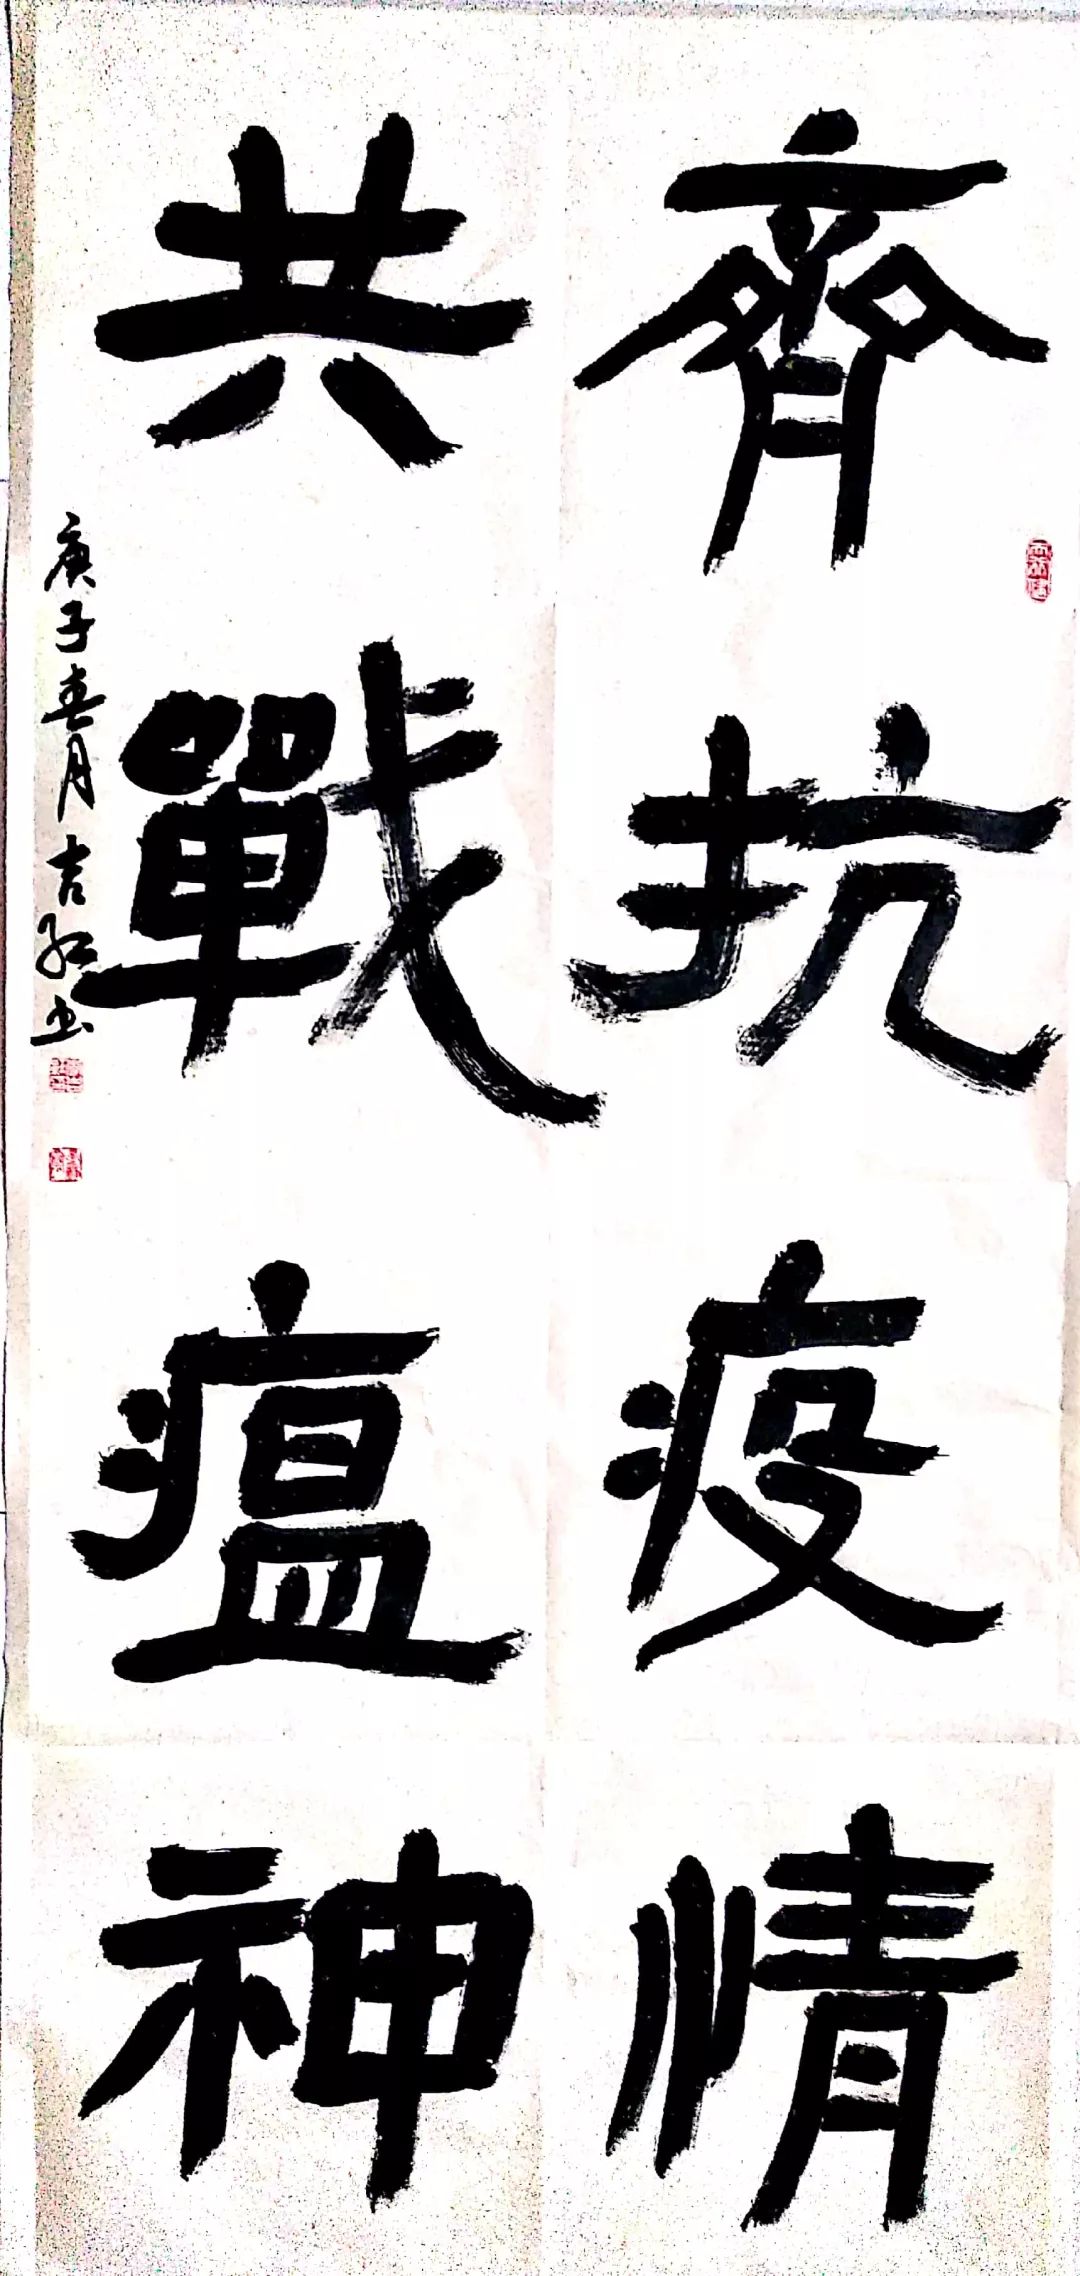 齊抗疫情
共戰瘟神
庚子春月吉紅书